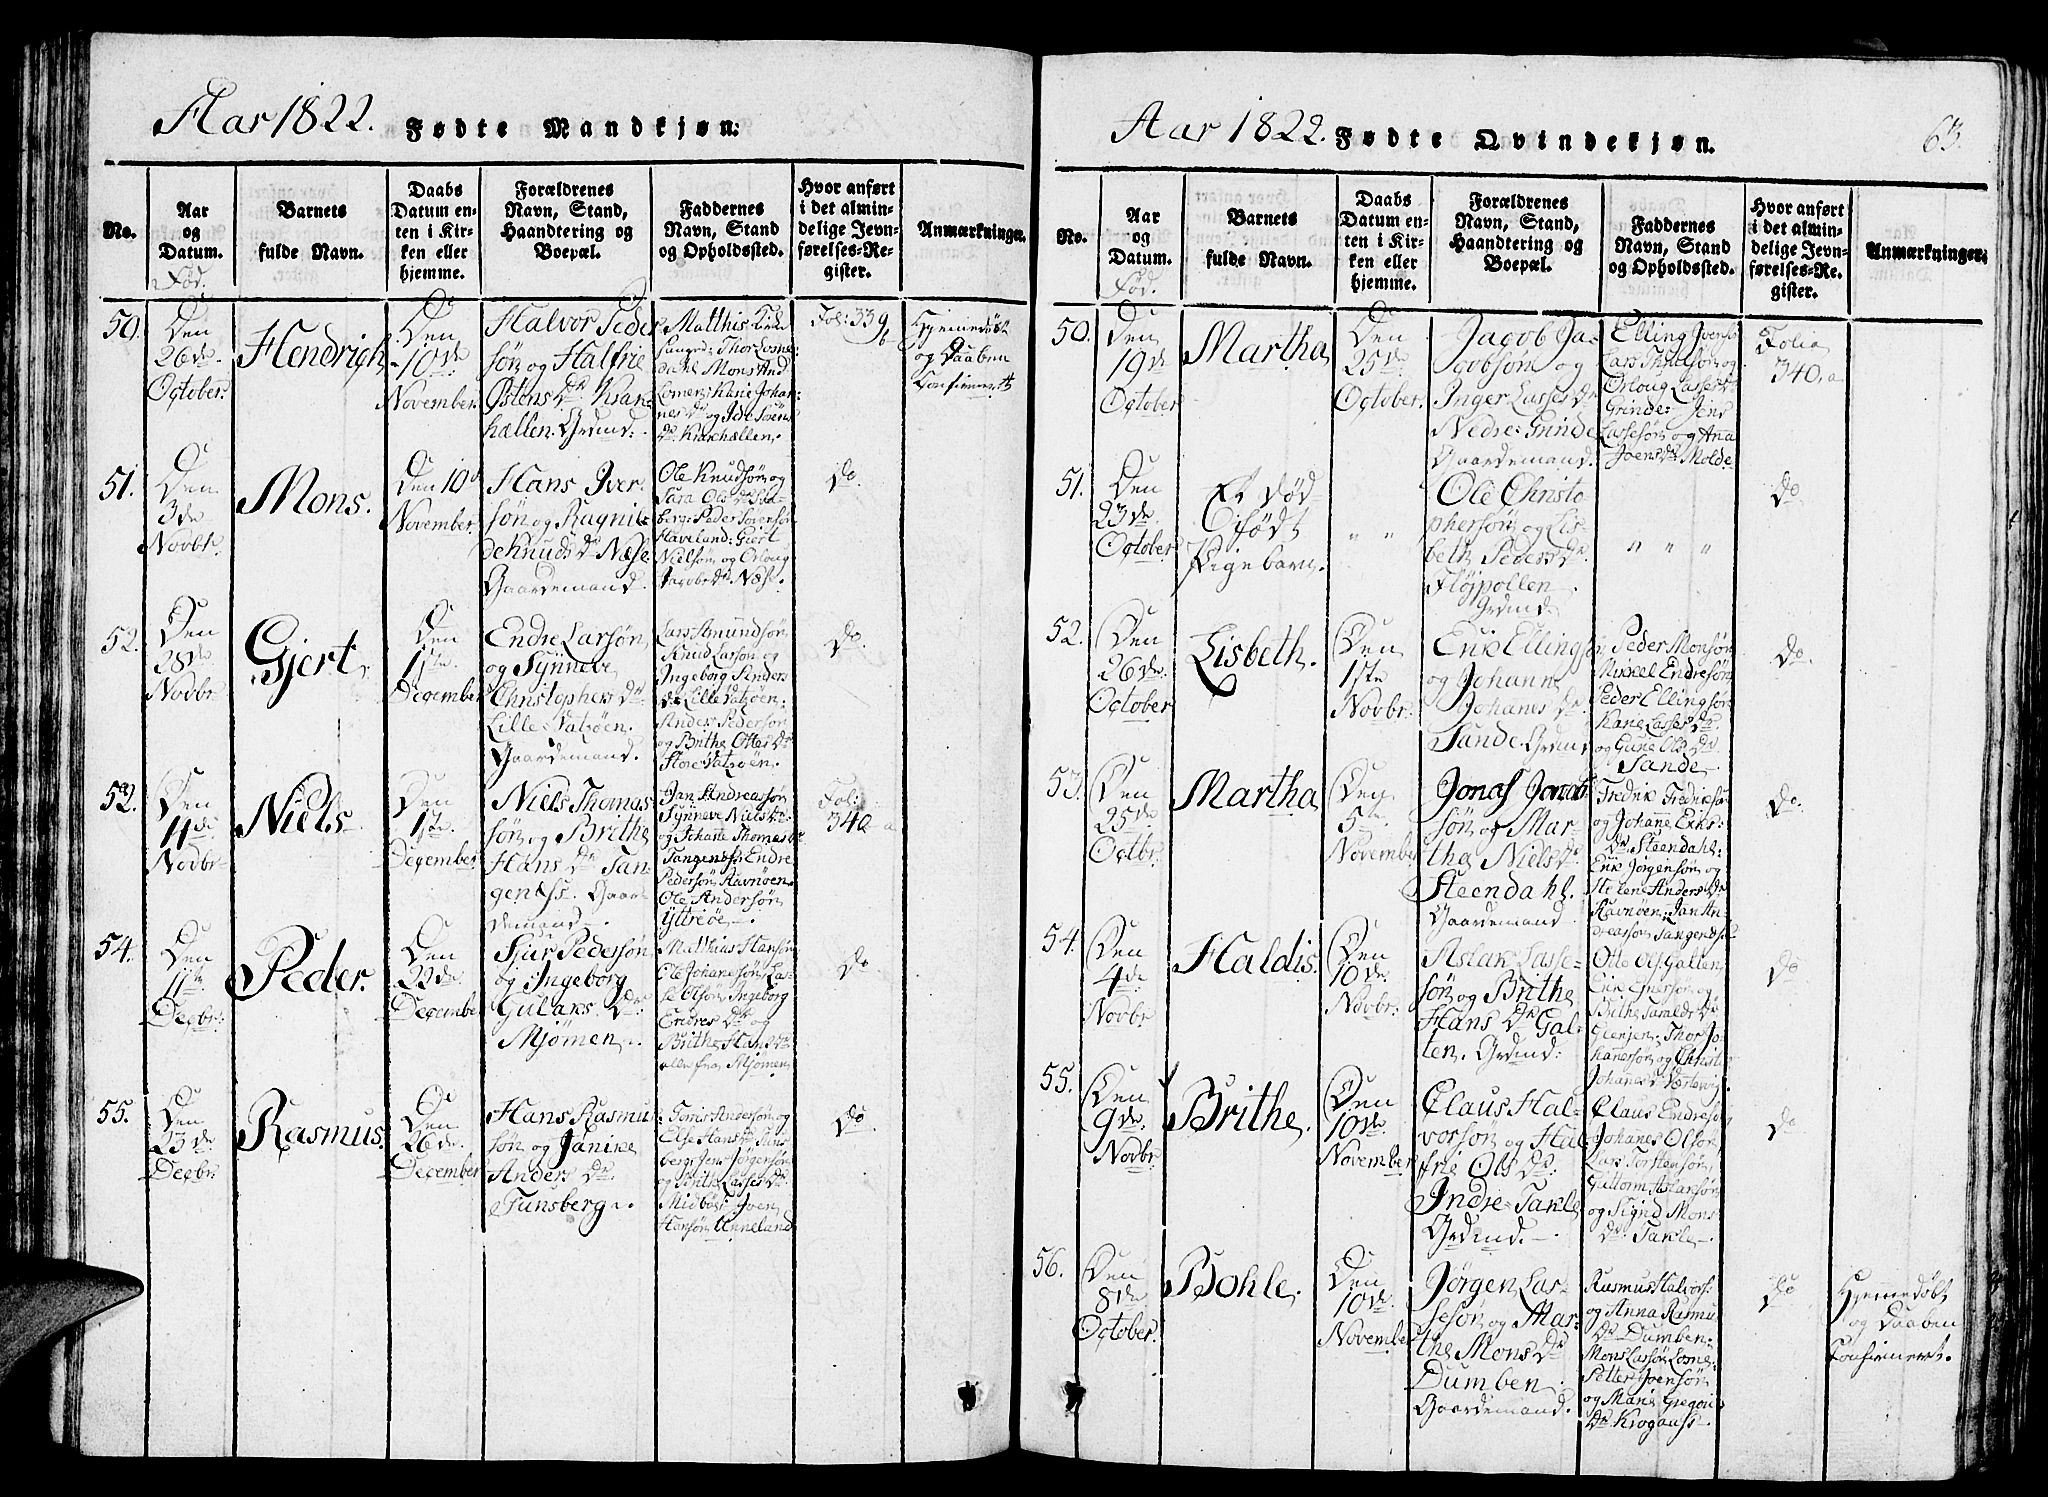 Aar 1822. Fødte Mandkjøn:
No.
Aar
og
Datum.
Fød.
Barnets
fulde Navn.
Daabs
Datum en-
ten i Kir-
ken eller
hjemme.
Forældrenes
Navn, Stand,
Haandtering og
Boepæl.
Faddernes
Navn, Stand
og Opholdssted.
Hvor anført
i det almin-
delige Jevn-
førelses-Re-
gister.
Anmærkninger.
50.
Den
26de
October.
Hendrich
Den
10de
November.
Halvor Peder
søn og Halfrie
Østens Dr Krak
hællen. Grdmd:
Matthis
Thor Losne
Mons And
Karie Johan
nes Dr og Ide Søens
Dr Krakhællen.
Fol: 339 b
Hjemmedøbt
og Daaben
Confirmert
51.
Den
3de
Novbr.
Mons.
Den 10de
November.
Hans Iver
søn og Ragnil-
de Knuds Dr Næse
Gaardemand.
Ole Knudsøn og
Sara Ols Dr
berg: Peder Sørensøn
Haveland: Giert
Nielsøn og Orloug
Jacobs Dr Næse.
Do.
52.
Den
28de
Novbr.
Gjert.
Den
1te
December
Endre Larsøn
og Synneve
Christophers Dr
Lille-Satzøen.
Gaardemand.
Lars Amundsøn
Knud Larsøn og
Ingeborg Anders
dr Lille Satzøen:
Anders Pedersøn
og Brithe Ottes Dr
Store Satzøen.
Do.
52.
Den
4de
Novbr
Niels
Den
1te
December
Niels Thomas
søn og Brithe
Hans Dr Tan-
genæss. Gaar-
demand.
Jan Andreassøn
Synneve Niels Dr
og Johane Thomas Dr
Tangenæss: Endre
Pedersøn Ravnøen.
Ole Andersøn
Yttreøe.
Fol:
340 a
54.
Den
11te
Decbr:
Peder.
Den
22de
December
Sjur Pedersøn
og Ingeborg
Gulaks Dr
Mjømen.
Matthias Hansøn
Ole Johanesøn Las-
se Olsøn Ingeborg
Endres Dr og
Brithe Hans Dr
alle fra Mjømen
Do
55.
Den
23de
Decbr.
Rasmus.
Den
26de
December
Hans Rasmu
søn og Janike
Anders Dr
Tunsberg.
Andersøn og
Else Hans Dr Tuns
berg: Jens Jørgensøn
og Brithe Lasses Dr
Midbøe: Iver
Hansøn Unneland
Do
Aar 1822. Fødte Qvindekjøn.
63.
No.
Aar
og
Datum.
Fød.
Barnets
fulde Navn.
Daabs
Datum en-
ten i Kir-
ken eller
hjemme.
Forældrenes
Navn, Stand,
Haandtering og
Boepæl.
Faddernes
Navn, Stand
og Opholdssted.
Hvor anført
i det almin-
delige Jevn-
førelses-Re-
gister.
Anmærkninger.
50.
Den
19de
October
Martha
Den
25de
October.
Jacob Ja-
cobsøn og
Inger Lasses Dr
Nedre-Grinde
Gaardemand.
Elling Iversø
Lars Thuesøn og
Orloug Lasses Dr
Grinde: Jens
Lassesøn og Ana
Joens Dr Molde
Folia
340. a
51.
Den
23de
October
Et død-
født
Pigebarn.
" "
Ole Christo
phersøn og Lis
beth Peders Dr
Fløjpollen
Grdmd
" " "
Do
52.
Den
26de
October
Lisbeth.
Den
1ste
Novbr:
Erik Ellingsø
og Johanne
Johanes Dr
Sande. Grdmd
Peder Monsøn
Mikkel Endresøn
Peder Ellingsøn
Kane Lasses Dr
og Gune Ols Dr
Sande
Do.
53.
Den
25de
Octbr.
Martha
Den
5te
November
Jonas Jonas
søn og Mar-
the Niels Dr
Steendahl.
Gaardemand
Fredrik Fredriksøn
og Johanne Eriks:
Dr Steendahl:
Erik Jørgensøn og
Helene Anders Dr
Ravnøen: Jan An-
dreasøn Tangenæss
Do.
54.
Den
4de
Novbr
Haldis.
Den
10de
Novbr:
Aslak Lasse-
søn og Brithe
Hans Dr Gal-
ten. Grdmd:
Otte Ols. Galten
Erik Einersøn og
Brithe Haralds Dr
Glenjen: Thor Jo-
hanesøn og Christi
Johanes Dr Værtevig
Do
55.
Den
9de
Novbr.
Brithe.
Den
10de
November
Claus Hal-
vorsøn og Hal
frie Ols Dr
Indre-Takle
Grdmd.
Claus Endresøn
Johanes Olsøn
Lars Torstensøn
Guttorm Aslaksøn
og Signd Mons
Dr Takle
Do
56.
Den
8de
October.
Bohle.
Den
10de
November
Jørgen Las-
sesøn og Mar-
the Mons Dr
Dumben
Gaardemand.
Rasmus Halvors:
og Anna Rasmu
Dr Dumben:
Mons Larsøn Losne:
Petter Joensøn
og Marie Gregori
Dr Krogaass
Do
Hjemmedøbt
og Daaben
Confirmert.